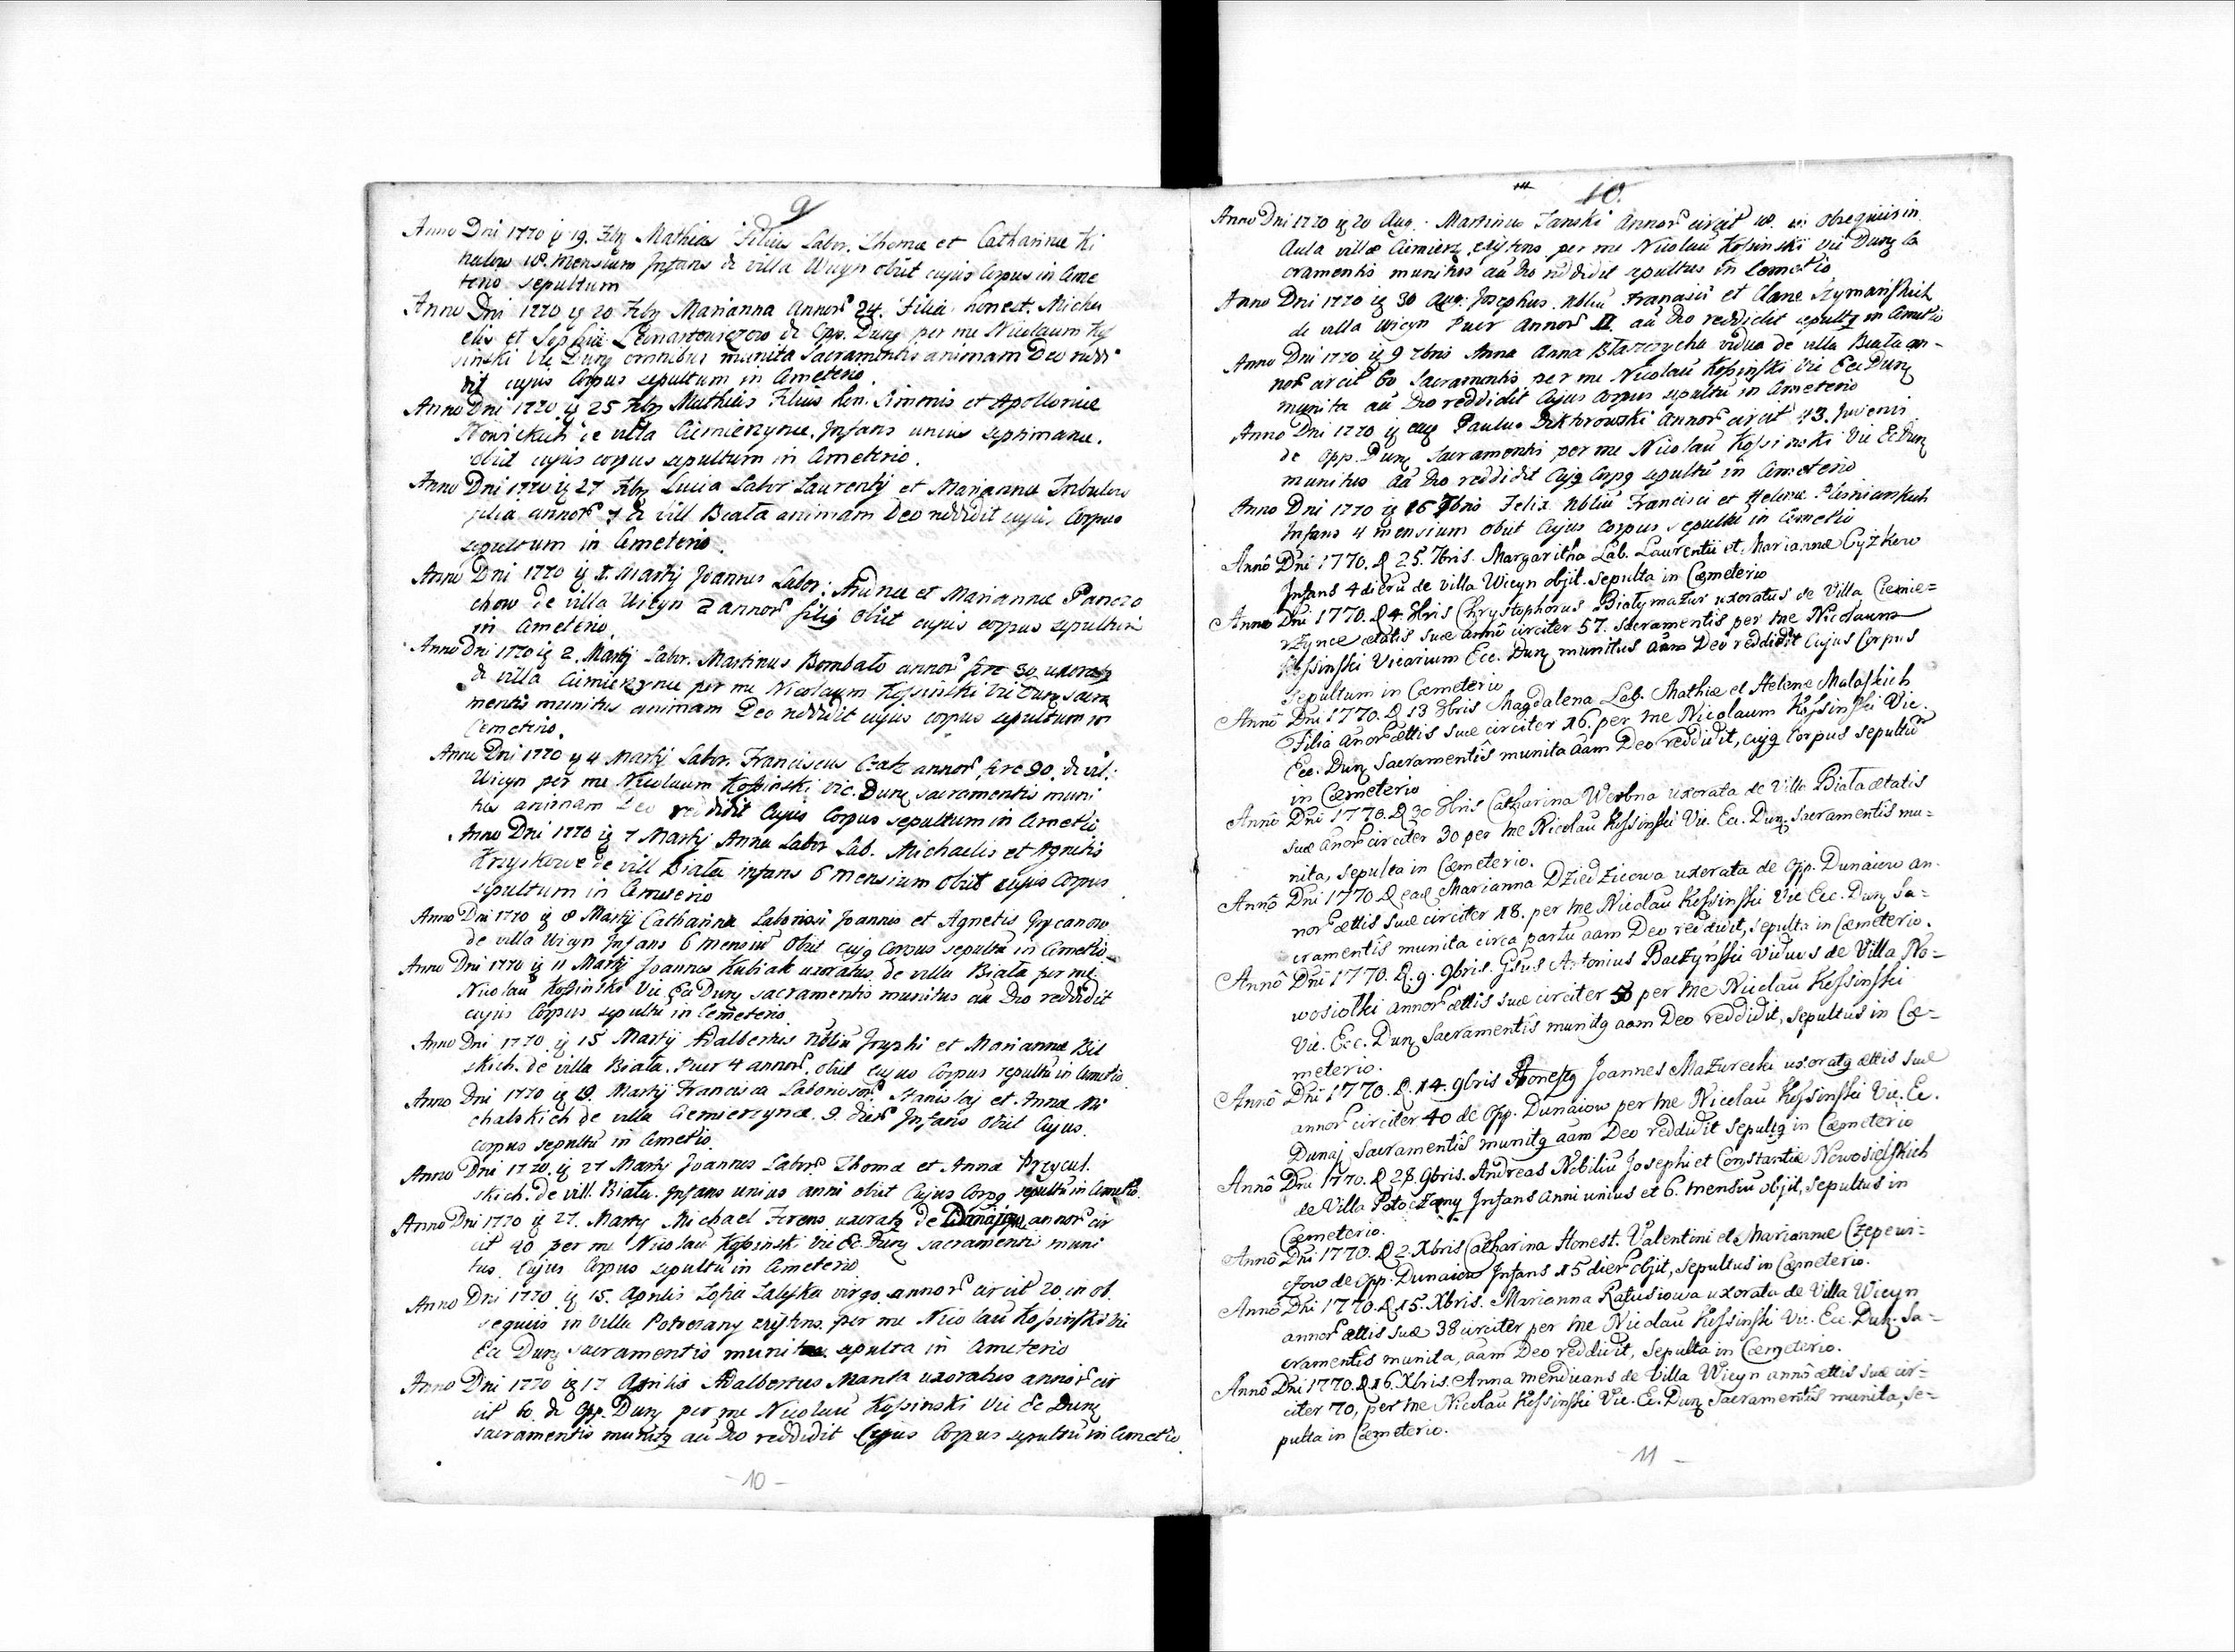 9
Anno Dni 1770 19. Mathias Filius Labor. Thomæ et Catharinæ Ki
mensium Infans de villa Wicyn obiit cujus Corpus in Cæme
terio sepultum
Anno Dni 1770 20 Marianna Annor 24. Filia honest. Micha
elis et Sophiæ de Opp. Dunq per me Nicolaum Kos
sinski Vic Dunq omnibus munita Sacramentis animam Deo reddi
dit cujus Corpus sepultum in Cmeterio.
Anno Dni 1770 25 Mathias Filius hon. Simonis et Apolloniæ
Nowickich de villa Ciemierzynce. Infans unius septimanæ.
obiit cujus corpus sepultum in Cmeterio.
Anno Dni 1770 27 Lucia Labor Laurentij et Mariannæ
filia annor 7 de vill Biała animam Deo reddidit cujus Corpus
sepultum in Cmeterio.
Anno Dni 1770 1. Martij Joannes Labor: Andreæ et Mariannæ Panczo
chow de villa Wicyn 2 annor filiq obiit cujus corpus sepultum
in Cmeterio.
Anno Dni 1770 2. Martij Labor. Martinus Bombało annor fere 30 uxoratq
de villa Ciemierzynce per me Nicolaum Kossinski Vic Dunq sacra
mentis munitus animam Deo reddidit cujus corpus sepultum in
Cemeterio.
Anno Dni 1770 4 Martij Labor. Franciscus annor fere 90. de vil.
Wicyn per me Nicolaum Kossinski vic. Dunq sacramentis muni
tus animam Deo reddidit Cujus Corpus sepultum in Cmetio
Anno Dni 1770 7 Martij Anna Labor Lab. Michaelis et Agnetis
de vill Biała infans 6 mensium obiit cujus Corpus
sepultum in Cmeterio
Anno Dni 1770 8 Martij Catharina Laboriosi Joannis et Agnetis
de villa Wicyn Infans 6 mensiu obiit cujq Corpus sepultu in Cmetio
Anno Dni 1770 11 Martij Joannes Kubiak uxoratus de villa Biała per me
Nicolau Kossinski Vic Ec Dunq sacramentis munitus au Deo reddidit
cujus Corpus sepultu in Cemeterio
Anno Dni 1770 15 Martij Adalbertus Nbliu Josephi et Mariannæ Bil
skich. de villa Biała. Puer 4 annor. obiit cujus Corpus sepultu in Cmetio
Anno Dni 1770 19. Martij Francisca Laboriosor Stanislaj et Annæ Mi
chalskich de villa Ciemierzynce. 9 dier Infans obiit Cujus
corpus sepultu in Cmetio
Anno Dni 1770. 27 Martij Joannes Labor Thomæ et Annæ Przycul.
skich. de vill. Biała. Infans unius anni obiit Cujus Corpq sepultu in Cmetio.
Anno Dni 1770 27. Martij Michael uxoratq de Dunajow annor cir
cit 40 per me Nicolau Kossinski Vic Ec Dunq sacramentis muni
tus Cujus Corpus sepultu in Cmeterio
Anno Dni 1770 15. Aprilis Zofia virgo. annor circit 20. in ob.
sequiis in villa Potoczany existens. per me Nicolau Kossinski Vic
Ec Dunq sacramentis munita sepulta in Cmeterio
Anno Dni 1770 17 Aprilis Adalbertus Manta uxoratus annor cir
cit 60. de Opp. Dunq per me Nicolau Kossinski Vic Ec Dunq
sacramentis munitq au Deo reddidit Cujus Corpus sepultu in Cmetio
- 10 -
10.
Anno Dni 1770 20 Aug. Martinus Janski Annor circit 18. in obsequiis in
Aula villæ Ciemierz. existens per me Nicolau Kossinski Vic Dunq Sa
cramentis munitus au Deo reddidit sepultus in Cemetio
Anno Dni 1770 30 Aug. Josephus Nbliu Francisci et Claræ Szymanskich
de villa Wicyn Puer Annor au Deo reddidit sepultq in Cmetio
Anno Dni 1770 9 7bris Anna vidua de villa Biała an-
nor circit 60 Sacramentis per me Nicolau Kossinski Vic Ecc Dunq
munita au Deo reddidit Cujus Corpus sepultu in Cmeterio
Anno Dni 1770 Paulus annor circit 43. Juvenis
de Opp. Dunq Sacramentis per me Nicolau Kossinski Vic Ec Dunq
munitus au Deo reddidit Cujq Corpq sepultu in Cmeterio
Anno Dni 1770 16 7bris Felix Nbliu Francisci et Helenæ
Infans 4 mensium obiit Cujus Corpus sepultu in Cmetio
Annô Dni 1770. D 25. 7bris. Margaritha Lab. Laurentii et Mariannæ Cyżkow
Infans 4 dieru de villa Wicyn objit. sepulta in Cœmeterio
Annô Dni 1770. D 4 8bris Chrystophorus Białymazur uxoratus de Villa Ciemie=
rzynce ætatis suæ annô circiter 57. sacramentis per me Nicolaum
Kossinski Vicarium Ecc. Dunq munitus aam Deo reddidit Cujus Corpus
sepultum in Cœmeterio
Annô Dni 1770. D 13 8bris Magdalena Lab. Mathiæ et Helenæ Małaskich
Filia anor ættis suæ circiter 16. per me Nicolaum Kossinski Vic.
Ecc. Dunq Sacramentîs munita aam Deo reddidit, cujq Corpus sepultu
in Cœmeterio
Annô Dni 1770. D 30 8bris Catharina Werbna uxorata de Villa Biała ætatis
suæ anor circiter 30 per me Nicolau Kossinski Vic. Ecc. Dunq. Sacramentîs mu=
nita, sepulta in Cœmeterio.
Annô Dni 1770. D ead Marianna Dziedzicowa uxorata de Opp. Dunaiow an-
nor ættis suæ circiter 18. per me Nicolau Kossinski Vic Ecc. Dunq Sa=
cramentîs munita circa partu aam Deo reddidit, sepulta in Cœmeterio.
Annô Dni 1770. D. 9. 9bris. Gsus Antonius Baczyński viduus de Villa No=
wosiołki annor ættis suæ circiter 50 per me Nicolau Kossinski
Vic. Ecc. Dunq Sacramentîs munitq aam Deo reddidit, sepultus in Cœ=
meterio.
Annô Dni 1770. D. 14. 9bris Honestq Joannes Mazurecki uxoratq ættis suæ
annor circiter 40 de Opp. Dunaiow per me Nicolau Kossinski Vic. Ec.
Dunaj Sacramentîs munitq aam Deo reddidit sepultq in Cœmeterio
Annô Dni 1770. D 28. 9bris. Andreas Nobiliu Josephi et Constantiæ Nowosielskich
de Villa Potoczany Infans anni unius et 6. mensiu objit, sepultus in
Cœmeterio.
Annô Dni 1770. D 2. Xbris Catharina Honest. Valentini et Mariannæ Czepewi=
czow de Opp. Dunaiow Infans 15 dier objit, sepultus in Cœmeterio.
Annô Dni 1770. D 15. Xbris. Marianna Ratusiowa uxorata de Villa Wicyn
annor ættis suæ 38 circiter per me Nicolau Kossinski Vic. Ecc. Dunq. Sa=
cramentîs munita, aam Deo reddidit, sepulta in Cœmeterio.
Annô Dni 1770. D 16. Xbris. Anna mendicans de Villa Wicyn annô ættis suæ cir=
citer 70, per me Nicolau Kossinski Vic. Ec. Dunq Sacramentîs munita, se=
pulta in Cœmeterio.
11 -